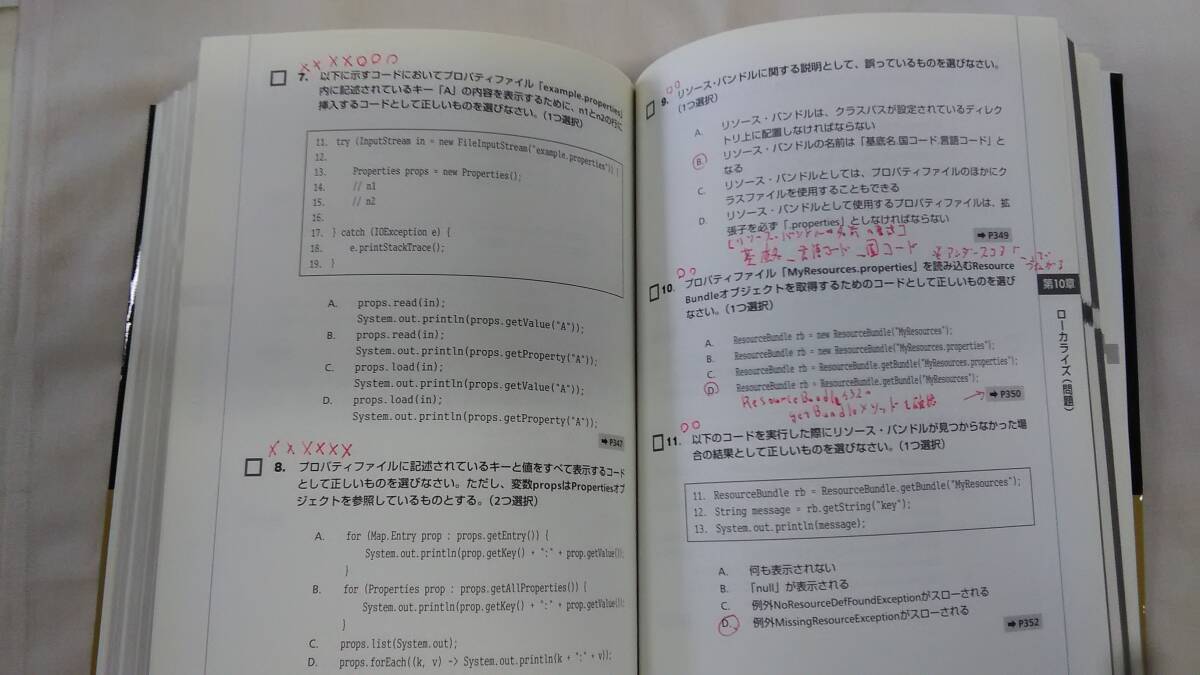 ××××○○○
7. 以下に示すコードにおいてプロパティファイル「example.properties」
内に記述されているキー「A」の内容を表示するために、n1とn2の行に
挿入するコードとして正しいものを選びなさい。(1つ選択)
11. try (InputStream in = new FileInputStream("example.properties")) {
12.
13. Properties props = new Properties();
14. // n1
15. // n2
16.
17. } catch (IOException e) {
18. e.printStackTrace();
19. }
A. props.read(in);
System.out.println(props.getValue("A"));
B. props.read(in);
System.out.println(props.getProperty("A"));
C. props.load(in);
System.out.println(props.getValue("A"));
D. props.load(in);
System.out.println(props.getProperty("A"));
➡P347
××××××
8. プロパティファイルに記述されているキーと値をすべて表示するコード
として正しいものを選びなさい。ただし、変数propsはPropertiesオブ
ジェクトを参照しているものとする。(2つ選択)
A. for (Map.Entry prop : props.getEntry()) {
System.out.println(prop.getKey() + ":" + prop.getValue());
}
B. for (Properties prop : props.getAllProperties()) {
System.out.println(prop.getKey() + ":" + prop.getValue());
}
C. props.list(System.out);
D. props.forEach((k, v) -> System.out.println(k + ":" + v));
○○
9. リソース・バンドルに関する説明として、誤っているものを選びなさい。
(1つ選択)
A. リソース・バンドルは、クラスパスが設定されているディレク
トリ上に配置しなければならない
B. リソース・バンドルの名前は「基底名.国コード.言語コード」と
なる
C. リソース・バンドルとしては、プロパティファイルのほかにク
ラスファイルを使用することもできる
D. リソース・バンドルとして使用するプロパティファイルは、拡
張子を必ず「.properties」としなければならない
➡P349
リソース・バンドルの名前の書式
基底名_言語コード_国コード ※アンダースコア「_」で
つなげる
○○
10. プロパティファイル「MyResources.properties」を読み込むResource
Bundleオブジェクトを取得するためのコードとして正しいものを選び
なさい。(1つ選択)
A. ResourceBundle rb = new ResourceBundle("MyResources");
B. ResourceBundle rb = new ResourceBundle("MyResources.properties");
C. ResourceBundle rb = ResourceBundle.getBundle("MyResources.properties");
D. ResourceBundle rb = ResourceBundle.getBundle("MyResources");
➡P350
ResourceBundleクラスの
getBundleメソッドを確認
○○
11. 以下のコードを実行した際にリソース・バンドルが見つからなかった場
合の結果として正しいものを選びなさい。(1つ選択)
11. ResourceBundle rb = ResourceBundle.getBundle("MyResources");
12. String message = rb.getString("key");
13. System.out.println(message);
A. 何も表示されない
B. 「null」が表示される
C. 例外NoResourceDefFoundExceptionがスローされる
D. 例外MissingResourceExceptionがスローされる
➡P352
第10章
ローカライズ(問題)